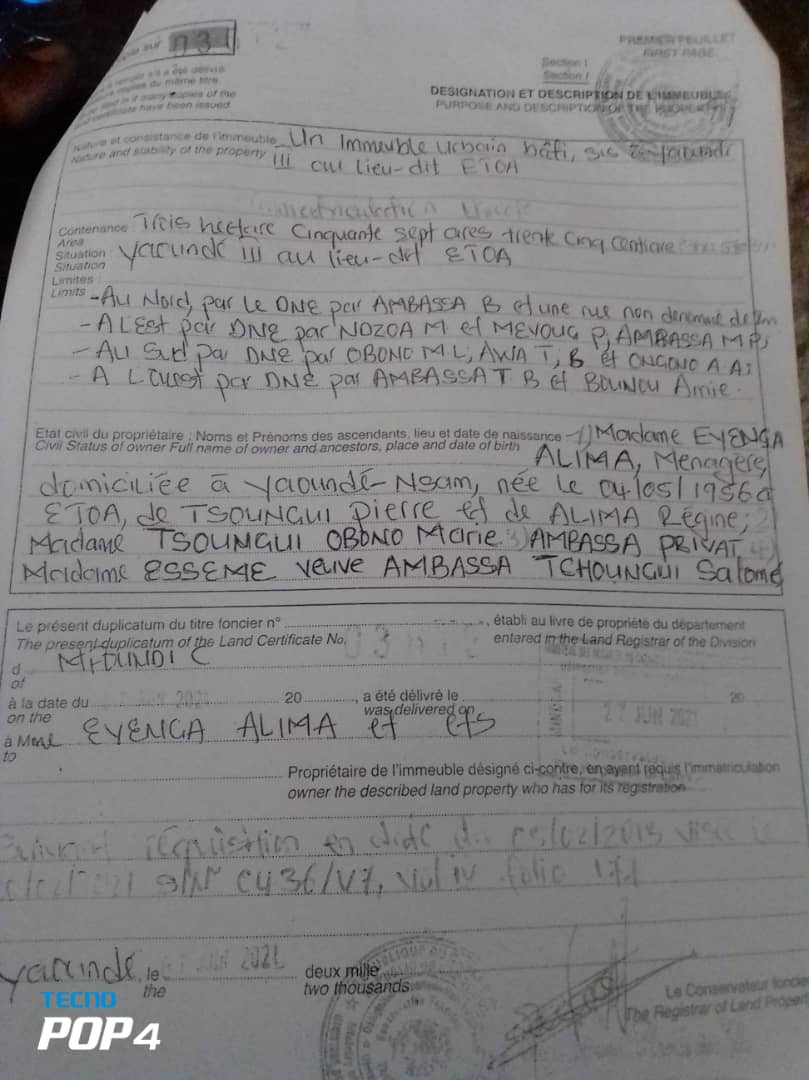 sur 031
PREMIER FEUILLET
FIRST PAGE
Section I
Section I
s'il a été délivré
copies du même titre.
if many copies of the
certificate have been issued
DESIGNATION ET DESCRIPTION DE L'IMMEUBLE
PURPOSE AND DESCRIPTION OF THE PROPERTY
Nature et consistance de l'immeuble Un Immeuble Urbain bâti, sis à Yaoundé
Nature and stability of the property III au lieu-dit ETOA
Contenance Trois hectare Cinquante sept ares trente Cinq Centiare
Area
Situation : Yaoundé III au lieu-dit ETOA
Situation
Limites :
Limits - Au Nord, par le DNE par AMBASSA B et une rue non denommé de
- A L'EST par DNE par NDZOA M et MEVOUG P; AMBASSA M P;
- Au Sud par DNE par OBONO M L; AWA T, B et ONGONO A A;
- A L'ouest par DNE par AMBASSA T B et BOUNOU Amie.
Etat civil du propriétaire : Noms et Prénoms des ascendants, lieu et date de naissance -1) Madame EYENGA
Civil Status of owner Full name of owner and ancestors, place and date of birth ALIMA, Menagère,
domiciliée à Yaoundé-Nsam, née le 04/05/1956 à
ETOA, de TSOUNGUI Pierre et de ALIMA Régine; 2)
Madame TSOUNGUI OBONO Marie 3) AMBASSA PRIVAT 4)
Madame ESSEME veuve AMBASSA TCHOUNGUI Salomé
Le présent duplicatum du titre foncier n° , établi au livre de propriété du département
The present duplicatum of the Land Certificate No. entered in the Land Registrar of the Division
d MFOUNDI C
of
à la date du 2021 20 , a été délivré le 20
on the was delivered on 22 JUN 2021
à Mme EYENGA ALIMA et ets
to
Propriétaire de l'immeuble désigné ci-contre, en ayant requis l'immatriculation
owner the described land property who has for its registration
Suivant réquisition en date du 05/02/2013 visé le
2021 s/N° 0436/V7, Vol IV folio 171
Yaoundé, le JUN 2021 deux mille
the two thousands
Le Conservateur foncier
The Registrar of Land Proper
TECNO
POP 4